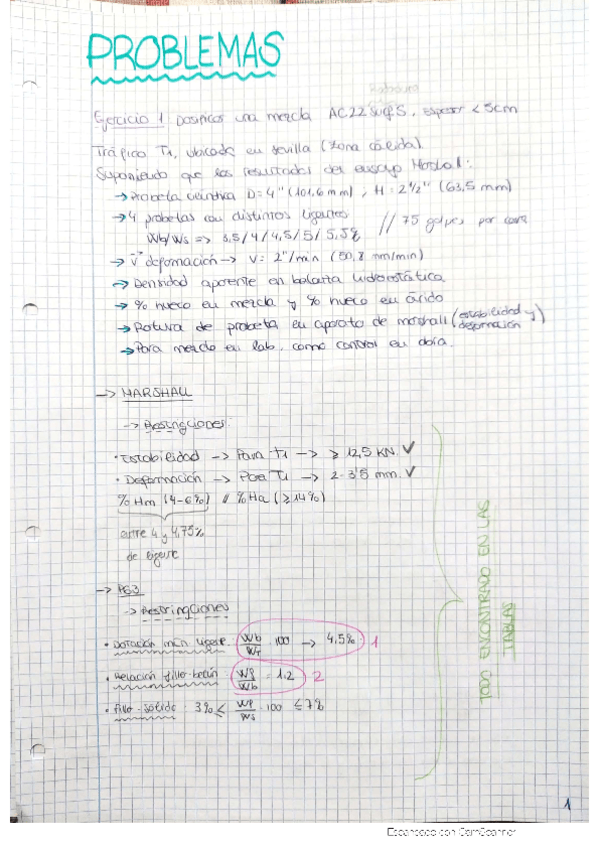 PROBLEMAS
Rodadura
Ejercicio 1 Dosificar una mezcla AC22 surf S, espesor < 5cm
Tráfico T1, ubicada en Sevilla (zona cálida).
Suponiendo que los resultados del ensayo Marshall:
→ Probeta cilíndrica D=4" (101,6 mm), H = 2 1/2" (63,5 mm)
→ 4 probetas con distintos ligantes // 75 golpes por cara
Wb/Ws => 3,5/4/4,5/5/5,5%
→ V deformación → V= 2"/min (50,8 mm/min)
→ Densidad aparente en balanza hidrostática
→ % hueco en mezcla y % hueco en árido
→ Rotura de probeta en aparato de marshall (estabilidad y deformación)
→ Para mezcla en lab. como control en obra.
→ MARSHALL
→ Restricciones:
• Estabilidad → Para T1 → ≥ 12,5 KN. ✓
• Deformación → Para T1 → 2-3'5 mm. ✓
% Hm (4-6%) // % Ha (≥14%)
entre 4 y 4,75%
de ligante
→ PG3
→ Restricciones
• Dotación mín ligante Wb/WT · 100 → 4,5% 1
• Relación filler-betún Wf/Wb = 1.2 2
• Filler-sólido: 3% ≤ Wf/Ws · 100 ≤ 7%
TODO ENCONTRADO EN LAS
TABLAS
1
Escaneado con CamScanner